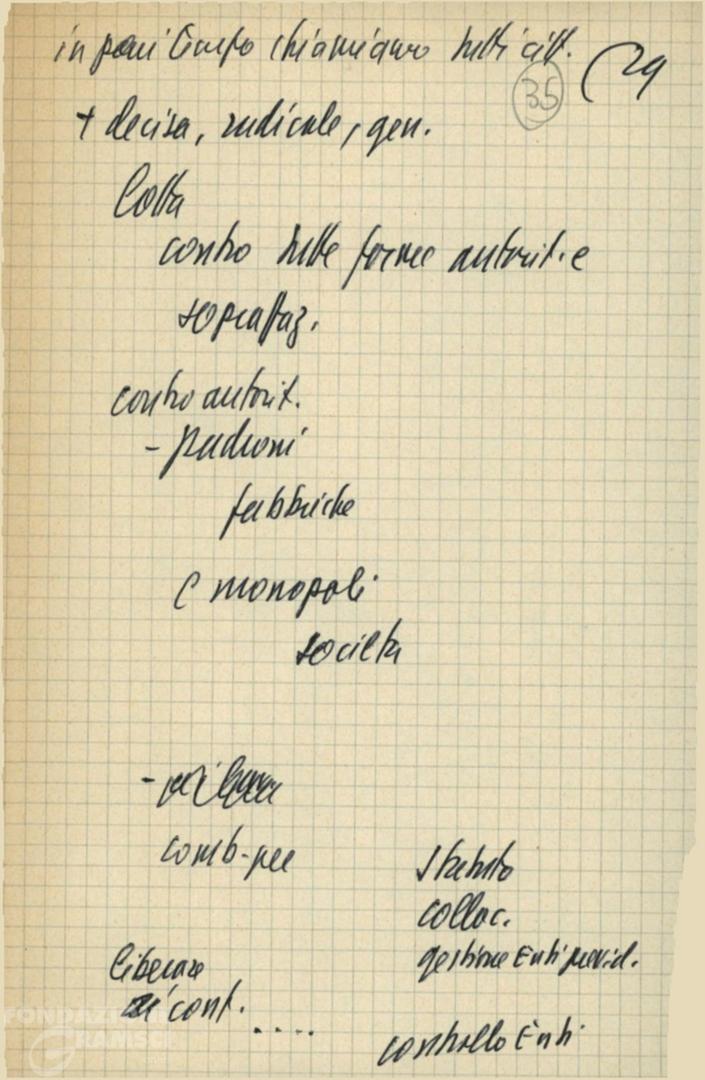 in pari tempo chiamiamo tutti citt. (29
35
+ decisa, radicale, gen.
Lotta
contro tutte forme autorit. e
sopraffaz.
contro autorit.
- padroni
fabbriche
C monopoli
società
-
comb-
Statuto
colloc.
gestione Enti previd.
Liberare
cont. ....
controllo Enti
FONDAZIONE
GRAMSCI